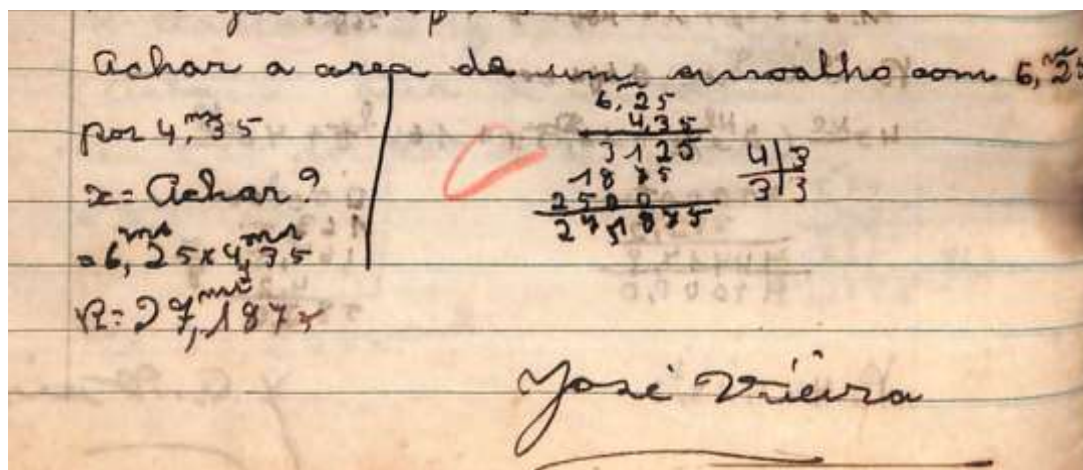 Achar a area de um assoalho com 6,25
por 4,ms35
x = Achar?
= 6,ms25 x 4,ms35
R = 27,ms21875
6,25
4,35
3125
1875
2500
27,1875
4 3
3 3
José Viêira